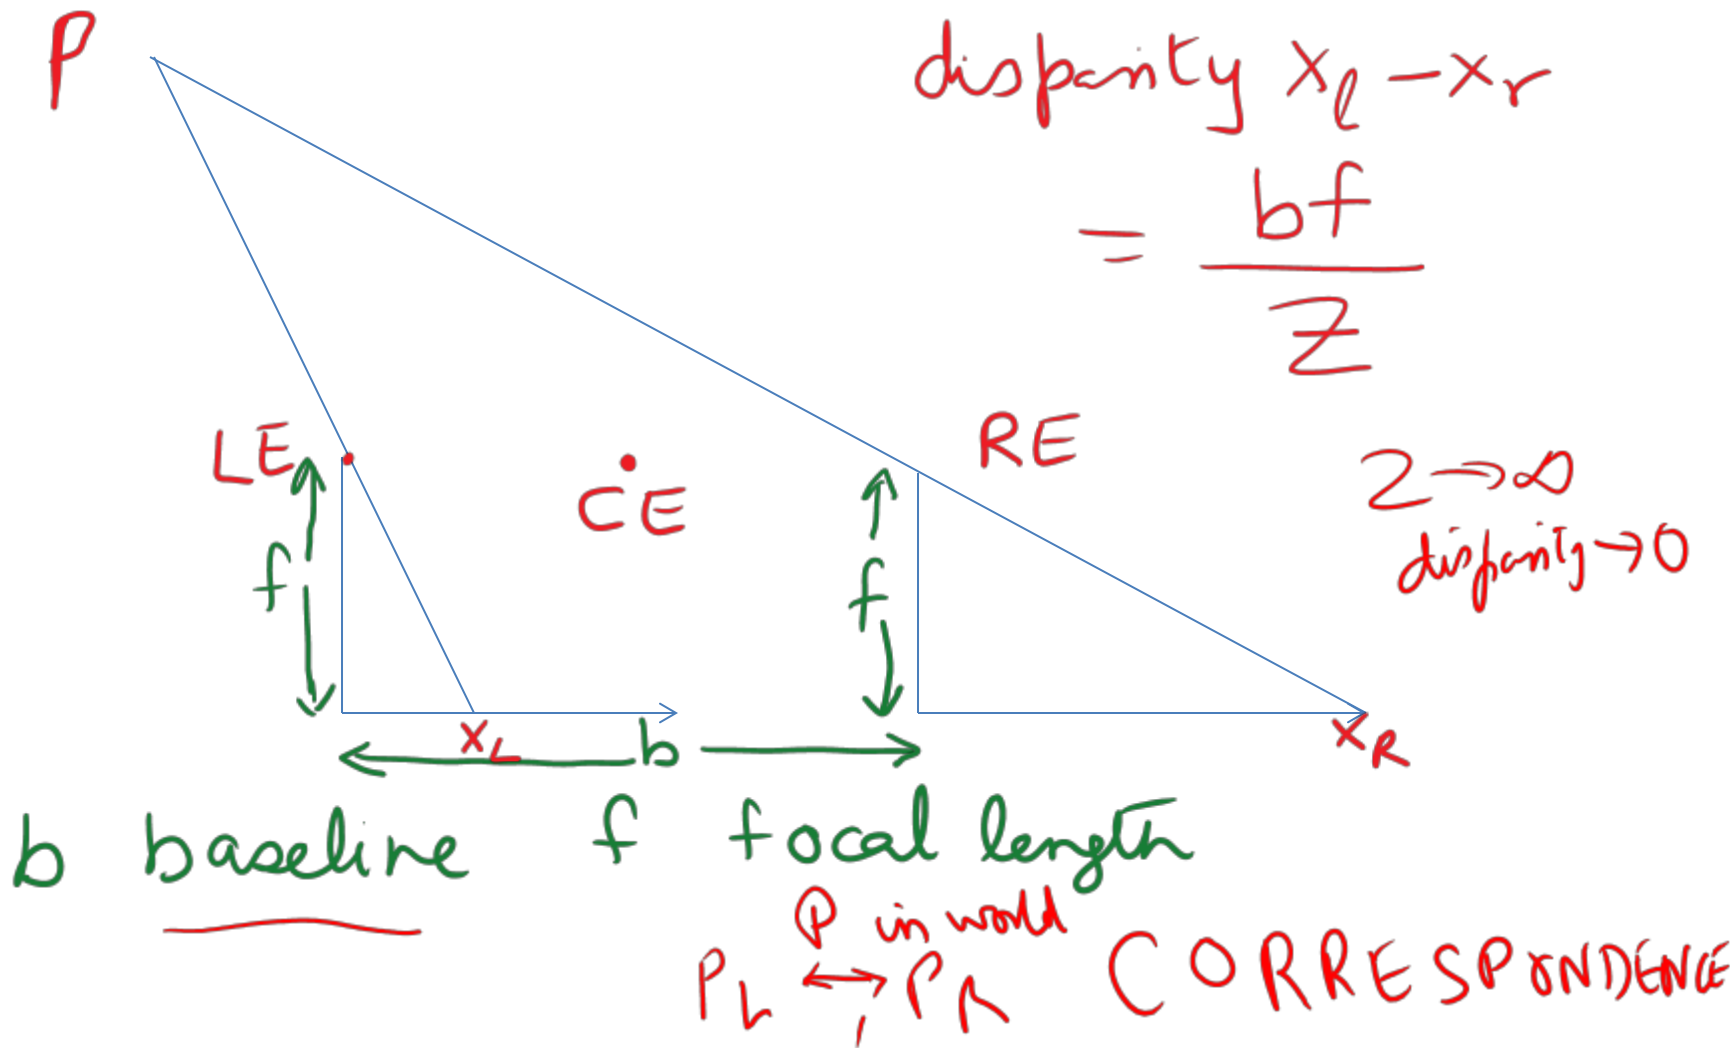 P
disparity x_l - x_r
= bf
Z
LE
CE
RE
Z → ∞
disparity → 0
f
f
x_L
b
x_R
b baseline f focal length
P in world
P_L ↔ P_R CORRESPONDENCE